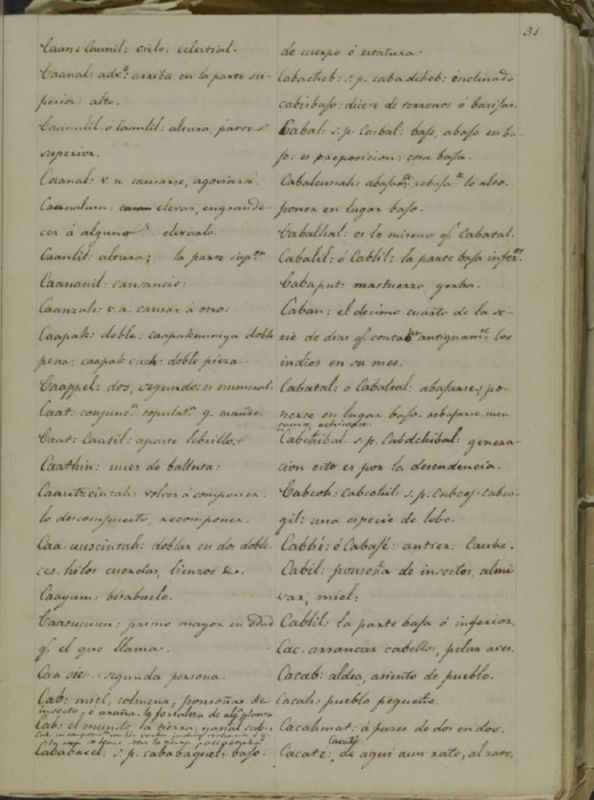 31
Caan: Caanil: cielo: celestial.
Caanal: adv.º arriba en la parte su-
perior: alto.
Caanalil ó Caanlil: altura, parte
superior.
Caanal: v. n. cansarse, agoviarse
Caanalcun: elevar, engrande-
cer á alguno elevarlo.
Caanlil: altura; la parte sup.or
Caananil: cansancio:
Caanzah: v. a. cansar á otro:
Caapak: doble: caapakmumya doble
pena: caapak cuch: doble pieza.
Caappel: dos, segundo: es numeral.
Caat: conjunc.n copulat.a y. cuando.
Caat: Caatil: aparte lebrillo.
Caathin: nuez de ballesta:
Caautzcintah: volver á componer
lo descompuesto, recomponer.
Caa uuscintah: doblar en dos doble-
ces. hilos cuerdas, lienzos &c.
Caayum: bisabuelo.
Caasucuun: primo mayor en edad
q. el que llama.
Caa segunda persona.
Cab: miel, colmena, ponsoñas de
insecto, ó araña. y fortaleza de alg.a planta
Cab: el mundo, la tierra,
Cababacel: s. p. cababaquel: bajo.
de cuerpo ó estatura:
Cabacheb: s. p. cabadcheb: inclinado
cabisbajo: dicese de terrenos ó barisas.
Cabal: s. p. Caabal: bajo, abajo en ba-
jo: es preposicion: cosa baja.
Cabalcunah: abajar, rebajar lo alto.
poner en lugar bajo.
Cabalhal: es lo mismo q. Cabatal.
Cabalil: ó Cablil: la parte baja infer.or
Cabaput: mastuerzo, yerba.
Caban: el decimo cuarto de la se-
rie de dias q. contab antiguam.te los
indios en su mes.
Cabatal: ó Cabalhal: abajarse, po-
nerse en lugar bajo. rebajarse men
Cabchibal. s. p. Cabdchibal: genera-
cion esto es por la decendencia.
Cabcoh: Cabcohil: s. p. Cabcoj. cabco-
gil: una especie de lobo.
Cabhé: ó Cabajé: antier:
Cabil: ponsoña de insectos, almi-
var, miel:
Cablil: la parte baja ó inferior
Cac. arrancar cabellos, pelar aves.
Cacab: aldea, asiento de pueblo.
Cacab: pueblo pequeño.
Cacahmat: á pares de dos en dos.
Cacate: de aqui á un rato, al rato.